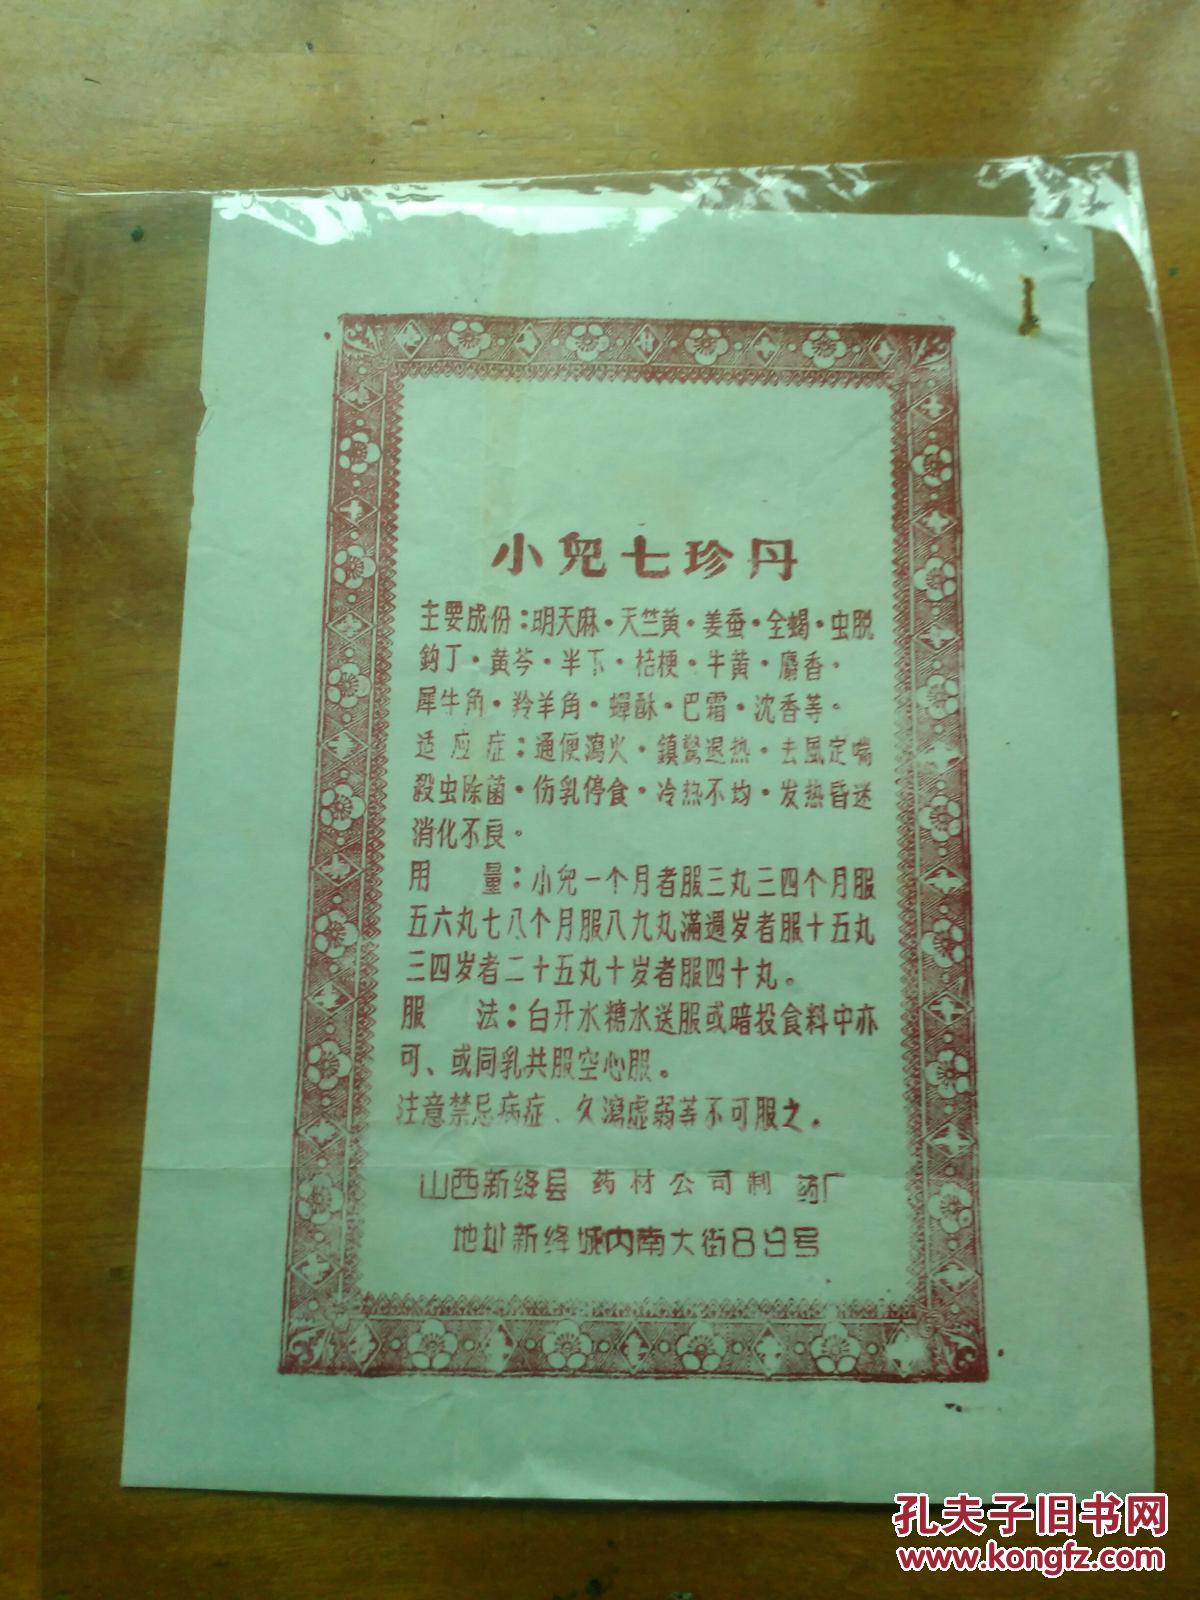 小兒七珍丹
主要成份：明天麻·天竺黄·姜蚕·全蝎·虫脱
鈎丁·黄芩·半下·桔梗·牛黄·麝香·
犀牛角·羚羊角·蟬酥·巴霜·沈香等。
适应症：通便瀉火·鎮驚退热·去風定喘
殺虫除菌·伤乳停食·冷热不均·发热昏迷
消化不良。
用 量：小兒一个月者服三丸三四个月服
五六丸七八个月服八九丸滿週岁者服十五丸
三四岁者二十五丸十岁者服四十丸。
服 法：白开水糖水送服或暗投食料中亦
可、或同乳共服空心服。
注意禁忌病症、久瀉虚弱等不可服之。
山西新绛县 药材公司制 药厂
地址新绛城内南大街89号
孔夫子旧书网
www.kongfz.com